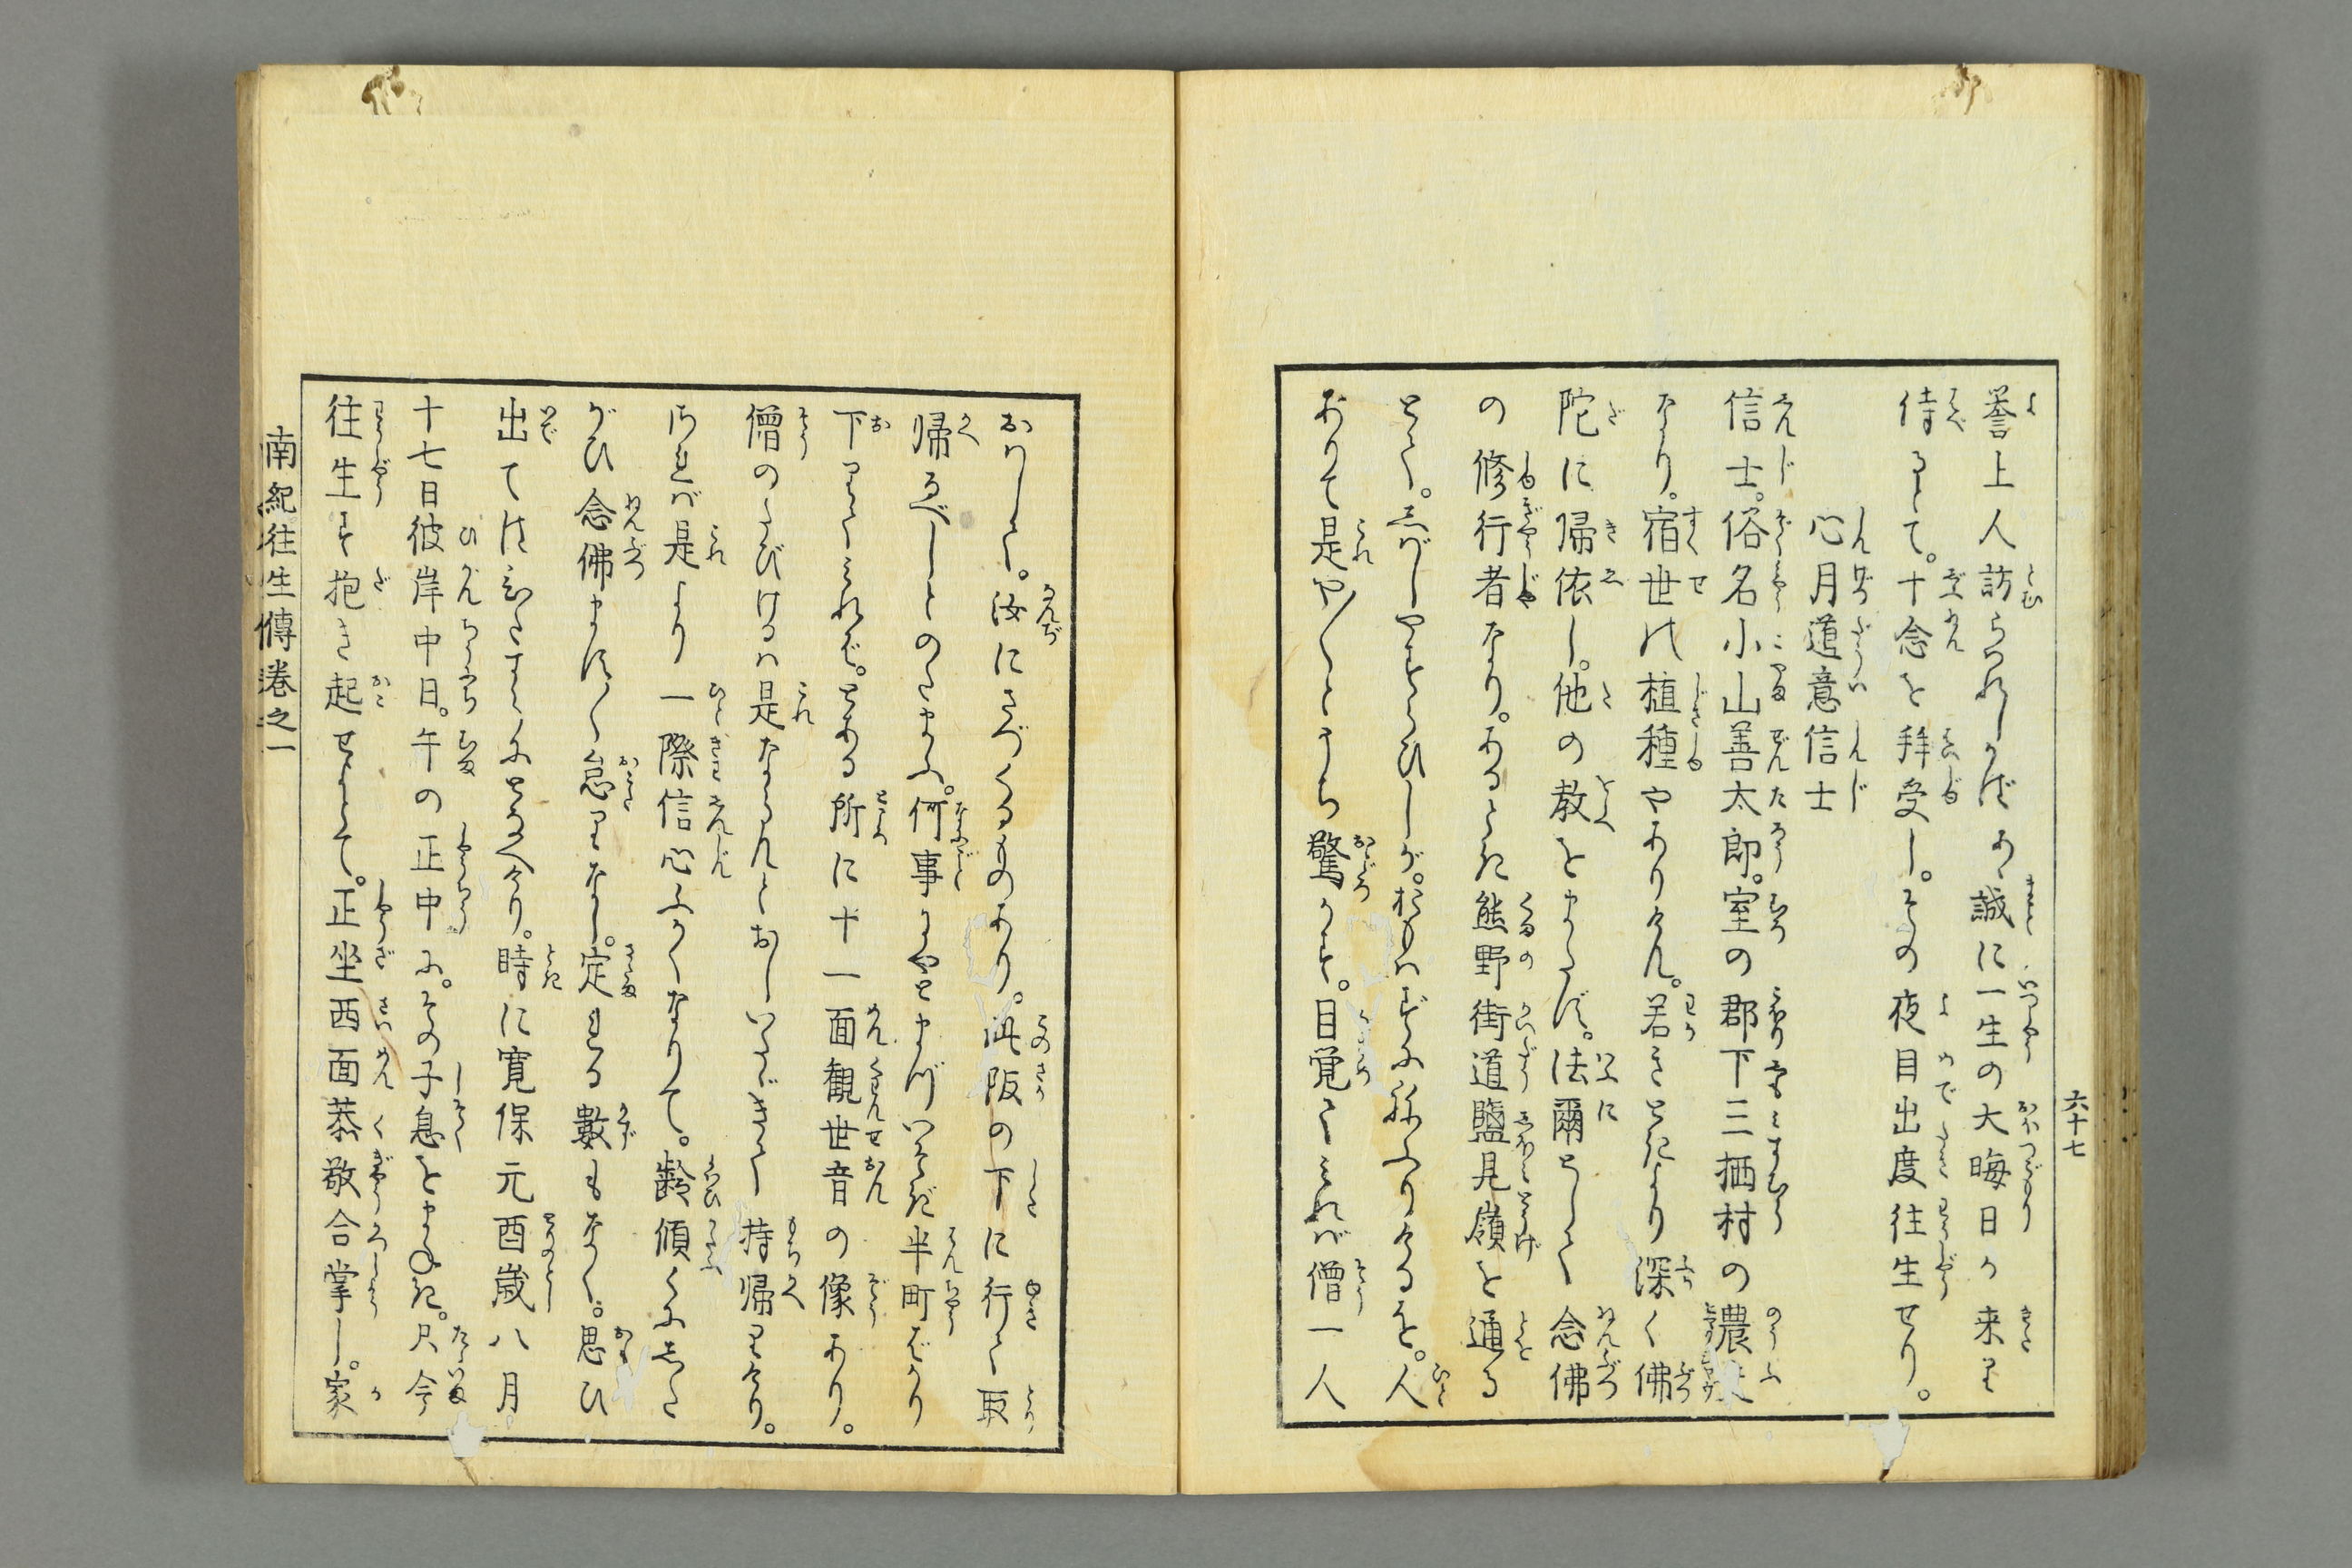 六十七
誉上人訪らはれしかばあゝ誠に一生の大晦日か来り
侍るとて。十念を拝受し。その夜目出度往生せり。
心月道意信士
信士。俗名小山善太郎。室の郡下三栖村の農
なり。宿世の植種やありけん。若きときより深く佛
陀に帰依し。他の教をまたず。法爾として念佛
の修行者なり。あるとき熊野街道鹽見嶺を通る
とて。しばしやすらひしが。おもはずふねふりけるを。人
ありて是や〳〵とうち驚かす。目覚てみれば僧一人
おはして。汝にさづくるものあり。此阪の下に行て取
帰るべしとのたまふ。何事にやとまづいそぎ半町ばかり
下りてみれば。とある所に十一面観世音の像あり。
僧のたびけるは是ならんとおしいたゞきて持帰りけり。
されば是より一際信心ふかくなりて。齢傾くにした
がひ念佛ます〳〵怠りなし。定れる數もなく。思ひ
出てはひたすらにとなへけり。時に寛保元酉歳八月。
十七日彼岸中日。午の正中に。その子息をまねき。只今
往生す抱き起せよとて。正坐西面恭敬合掌し。家
南紀往生傳巻之一